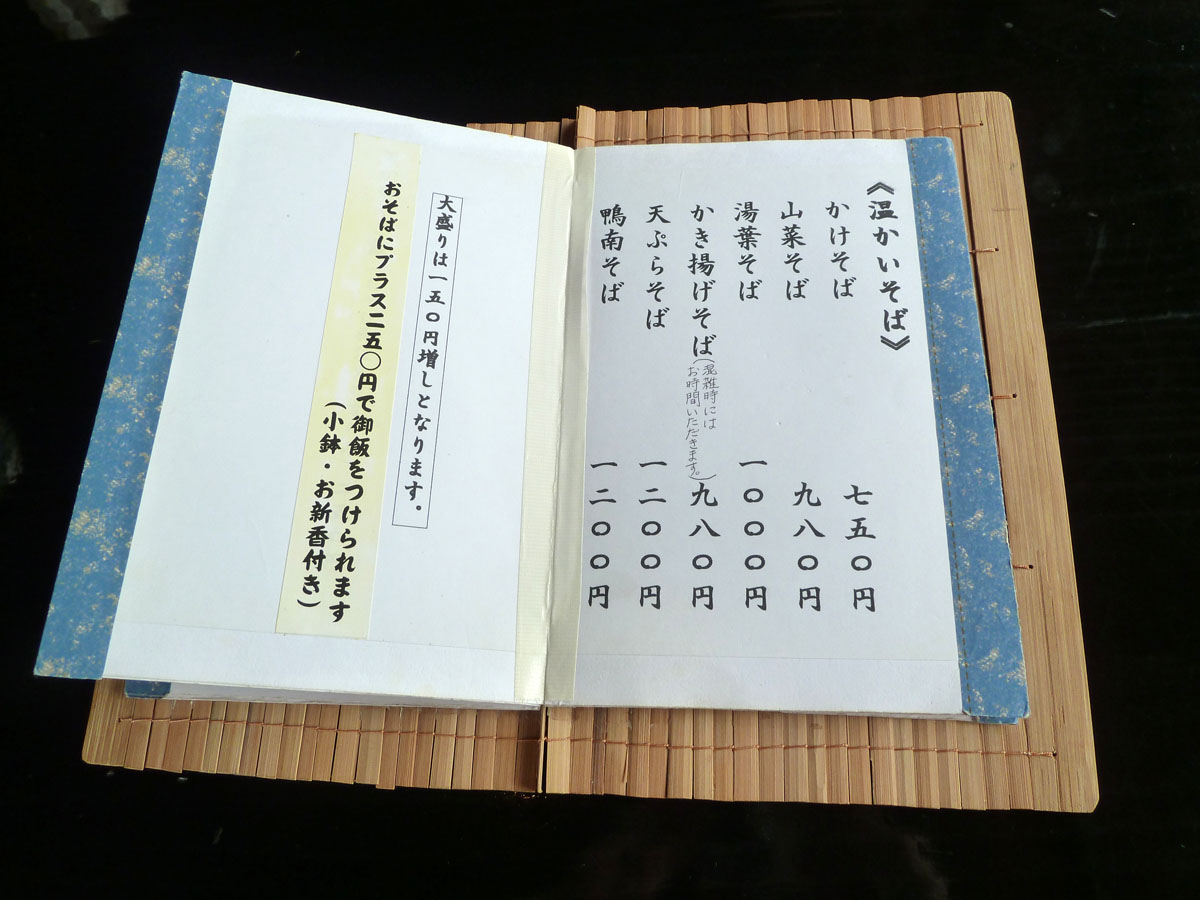 《温かいそば》
かけそば 七五〇円
山菜そば 九八〇円
湯葉そば 一〇〇〇円
かき揚げそば(混雑時には
お時間いただきます。) 九八〇円
天ぷらそば 一二〇〇円
鴨南そば 一二〇〇円
大盛りは一五〇円増しとなります。
おそばにプラス二五〇円で御飯をつけられます
(小鉢・お新香付き)